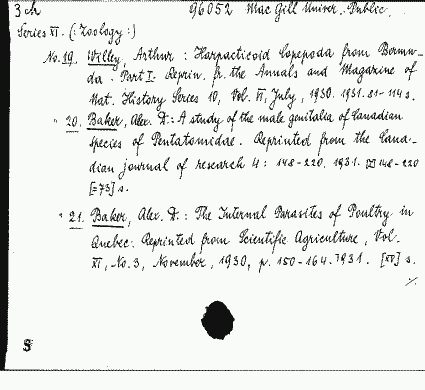 3 ch 96052 Mac Gill Univer. Public.
Series XI. (: Zoology :)
No. 19. Willey, Arthur : Harpacticoid Copepoda from Bermu-
da. Part I. Reprin. fr. the Annals and Magazine of
Nat. History Series 10, Vol. VI, July, 1930. 1931. 81-114 s.
" 20. Baker, Alex. D.: A study of the male genitalia of Canadian
species of Pentatomidae. Reprinted from the Cana-
dian journal of research 4: 148-220. 1931. 148-220
[=73] s.
" 21. Baker, Alex. D.: The Internal Parasites of Poultry in
Quebec. Reprinted from Scientific Agriculture, Vol.
XI, No. 3, November, 1930, p. 150-164. 1931. [XV] s.
./.
S